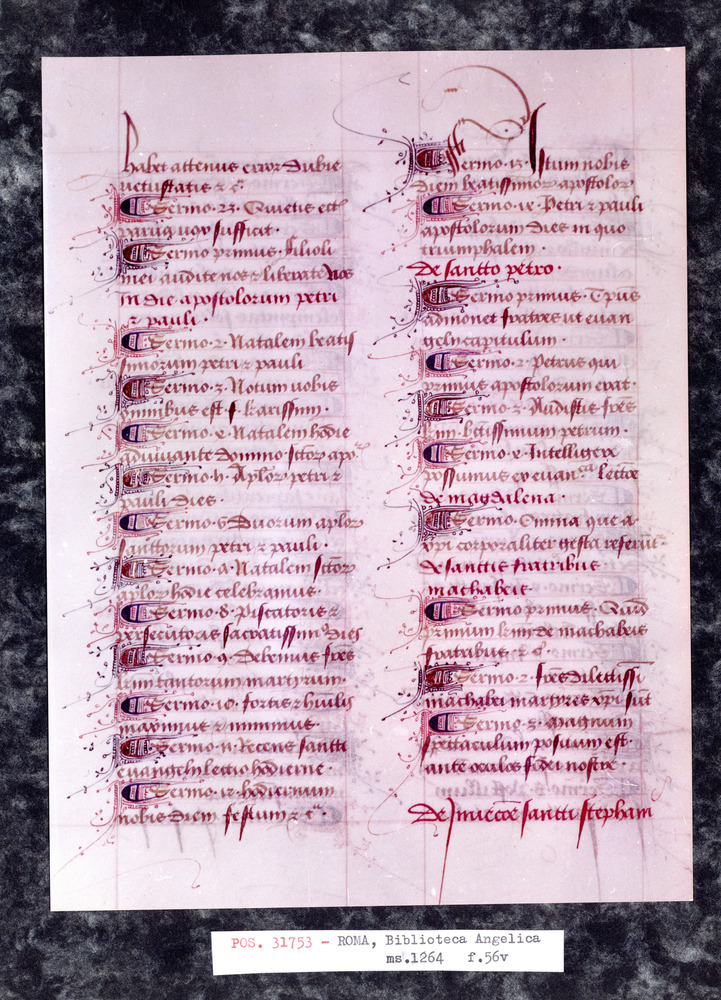 habet attenus error dubie
uetustatis ⁊ cͣ.
Sermo · 23 · Quietis est
paruꝗ uox sufficit ·
Sermo primus · filioli
mei audite nos ⁊ liberate uos
In die apostolorum petri
⁊ pauli ·
Sermo · 2 · Natalem beatis
simorum petri ⁊ pauli
Sermo · 3 · Notum uobis
omnibus est · f · karissim ·
Sermo · 4 · Natalem hodie
adiuuante domino sctoꝝ apo
Sermo · 5 · Apl'oꝝ petri ⁊
pauli dies ·
Sermo · 6 · Duorum aploꝝ
sanctorum petri ⁊ pauli ·
Sermo · 7 · Natalem sctoꝝ
aploꝝ hodie celebramus ·
Sermo · 8 · Piscatoris ⁊
persecutoris sacratissim' dies
Sermo · 9 · Debemus fr̄es
km̄ tantorum martyrum ·
Sermo · 10 · fortis ⁊ humilis
maximus ⁊ minimus ·
Sermo · 11 · Recens sancte
euangelij lectio hodierne ·
Sermo · 12 · hodiernum
nobis diem festum ⁊ cͣ ·
Sermo · 13 · Istum nobis
diem beatissimoꝝ apostoloꝝ
Sermo · 14 · Petri ⁊ pauli
apostolorum dies in quo
triumphalem ·
De sancto petro ·
Sermo primus · Tp̄us
admonet fratres ut euan
gelij capitulum ·
Sermo · 2 · Petrus qui
primus apostolorum erat ·
Sermo · 3 · Audistis fr̄es
km̄ · btissimum petrum ·
Sermo · 4 · Intelligere
possumus ex euan · lectoe
de magdalena ·
Sermo · Omnia que a
xp̄i corporaliter gesta referūt ·
de sanctis fratribus
machabeis ·
Sermo primus · Quid
primum km̄ de machabeis
fratribus · ⁊ cͣ ·
Sermo · 2 · fr̄es dilectissi
machabei martyres xp̄i sūt
Sermo · 3 · Magnum
spectaculum positum est ·
ante oculos fidei nostre ·
De Inuēcōe sancti stephani
POS. 31753 - ROMA, Biblioteca Angelica
ms.1264 f.56v